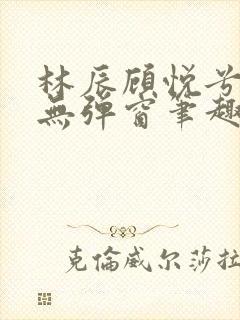 林辰顾悦兮
無彈窗筆趣
克倫威尔莎拉